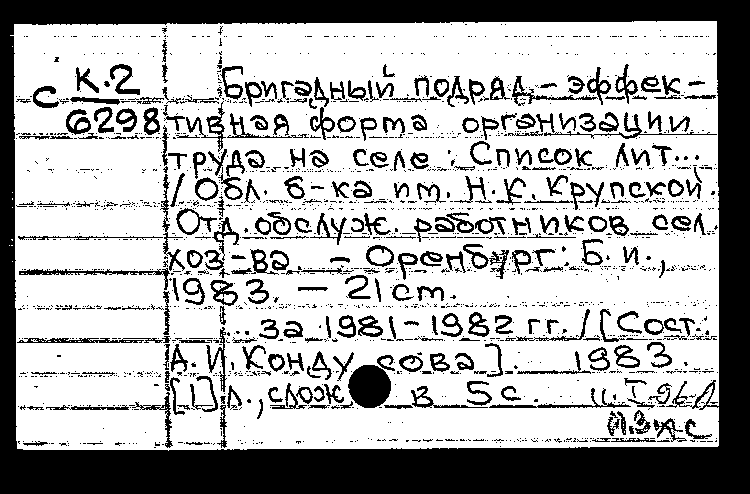 с К.2 Бригадный подряд – эффек-
6298 тивная форта организации
труда на селе : Список лит...
/ Обл. б-ка им. Н. К. Крупской.
Отд. обслуж. работников сел.
хоз-ва. – Оренбург: Б. и.,
1983. – 21 ст.
... за 1981-1982 гг. / [Сост.:
А. И. Кондусова]. 1983.
[1] л., слож в 5 с.